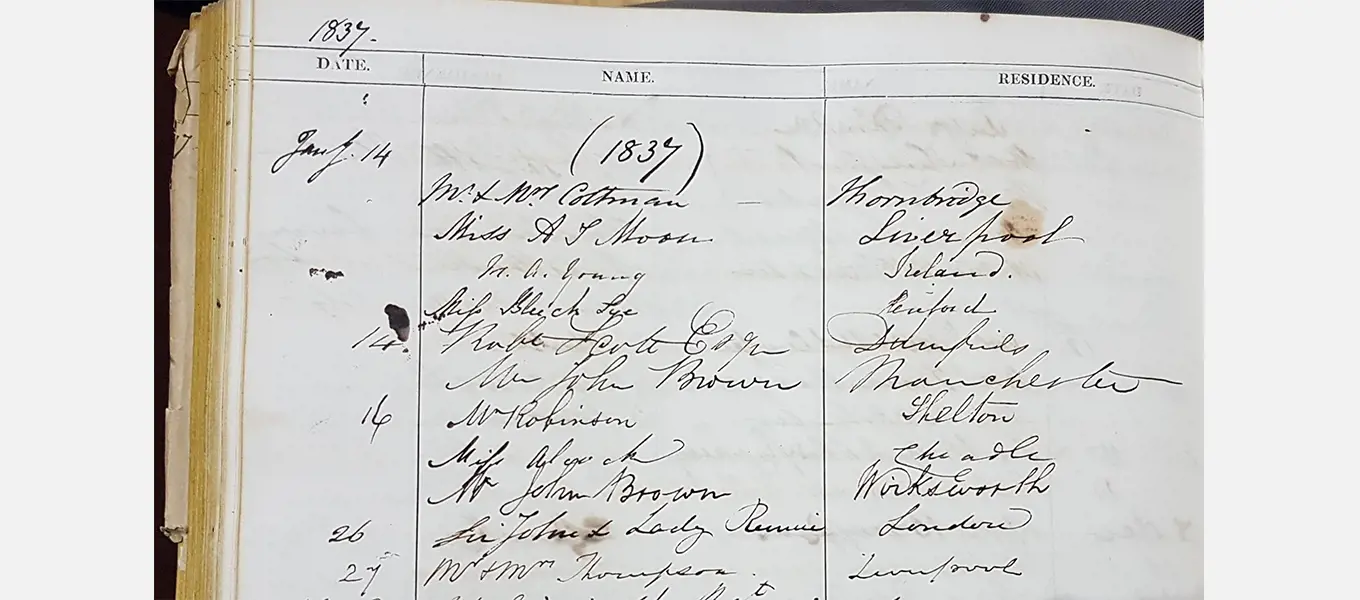 1837.
DATE. NAME. RESIDENCE.
Jany. 14 (1837)
Mr. & Mrs Coltman — Thornbridge
Miss A S Moon Liverpool
Young Ireland.
Miss
14. Robt Scott Esqr Dumfries
Mr John Brown Manchester
16 Mr Robinson Shelton
Miss Cheadle
Mr John Brown Wirksworth
26 Sir John & Lady Rennie London
27 Mr & Mrs Thompson. Liverpool